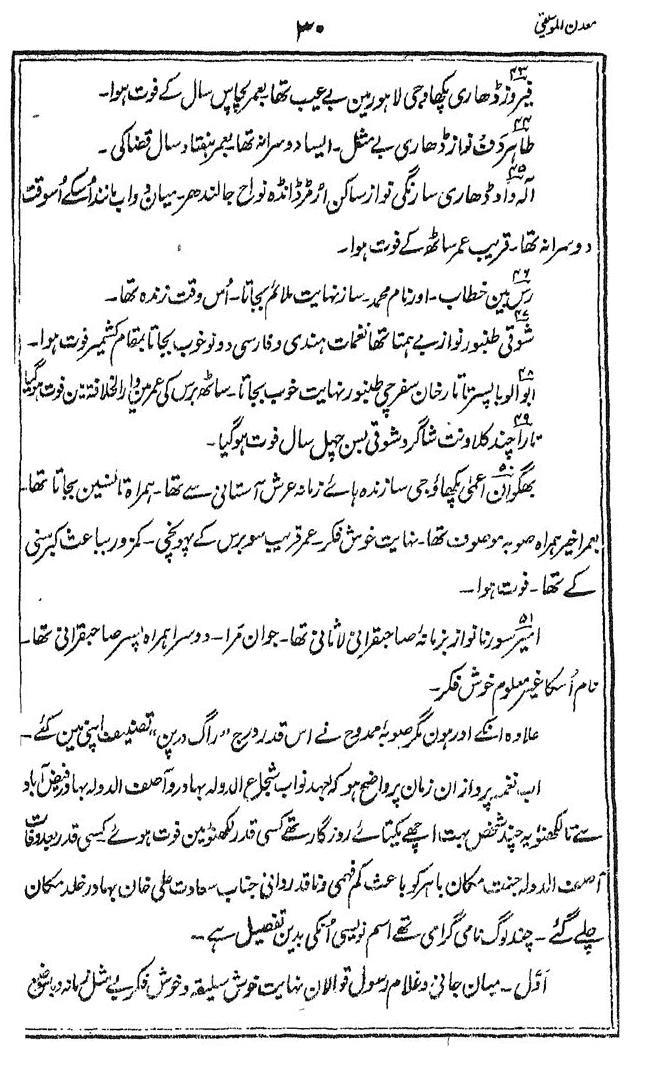 معدن الموسیقی
۳۰
۴۳
فیروز ڈھاری پکھاوجی لاہور مین بے عیب تھا بعمر پچاس سال کے فوت ہوا۔
۴۴
طاہر دف نواز ڈھاری بے مثل۔ ایسا دوسرا نہ تھا۔ بعمر ہفتاد سال قضا کی۔
۴۵
آلہ داد ڈھاری سارنگی نواز ساکن نواح جالندھر۔ میان دواب مانند اُسکے اُسوقت
دوسرا نہ تھا۔ قریب عمر ساٹھ کے فوت ہوا۔
۴۶
رس بین خطاب۔ اور نام محمد۔ ساز نہایت ملائم بجاتا۔ اُس وقت زندہ تھا۔
۴۷
شوقی طنبور نواز بے ہمتا تھا نغمات ہندی و فارسی دونو خوب بجاتا بمقام کشمیر فوت ہوا۔
۴۸
ابو الوبا پسر تاتار خان سفرچی طنبور نہایت خوب بجاتا۔ ساٹھ برس کی عمر مین دار الخلافة مین فوت ہو گیا
۴۹
تارا چند کلاونت شاگرد شوقی بسن چہل سال فوت ہو گیا۔
۵۰
بھگوان اعمیٰ پکھاوجی سازندہ ہائے زمانہ عرش آستانی سے تھا۔ ہمراہ تانسین بجاتا تھا۔
بعمر اخیر ہمراہ صوبہ موصوف تھا۔ نہایت خوش فکر۔ عمر قریب سو برس کے پہونچی۔ کمزور بباعث کبر سنی
کے تھا۔ فوت ہوا۔
۵۱
امیر سورنا نواز بزمانہٴ صاحبقرانی لاثانی تھا۔ جوان مرا۔ دوسرا ہمراہ پسر صاحبقرانی تھا۔
نام اُسکا غیر معلوم خوش فکر۔
علاوہ انکے اور ہون مگر صوبہٴ ممدوح نے اس قدر درج "راگ درپن" تصنیف اپنی مین کئے۔
اب نغمہ پردازان زمان پر واضح ہو کہ بعہد نواب شجاع الدولہ بہادر و آصف الدولہ بہادر فیض آباد
سے تا لکھنؤ یہ چند شخص بہت اچھے یکتائے روزگار تھے کسی قدر لکھنؤ مین فوت ہوئے کسی قدر بعد وفات
آصف الدولہ جنت مکان باہر کو باعث کم فہمی و ناقدردانی جناب سعادت علی خان بہادر خلد مکان
چلے گئے۔ چند لوگ نامی گرامی تھے اسم نویسی اُنکی بدین تفصیل ہے۔
اوّل۔ میان جانی و غلام رسول قوالان نہایت خوش سلیقہ و خوش فکر بے مثل زمانہ و باوضع